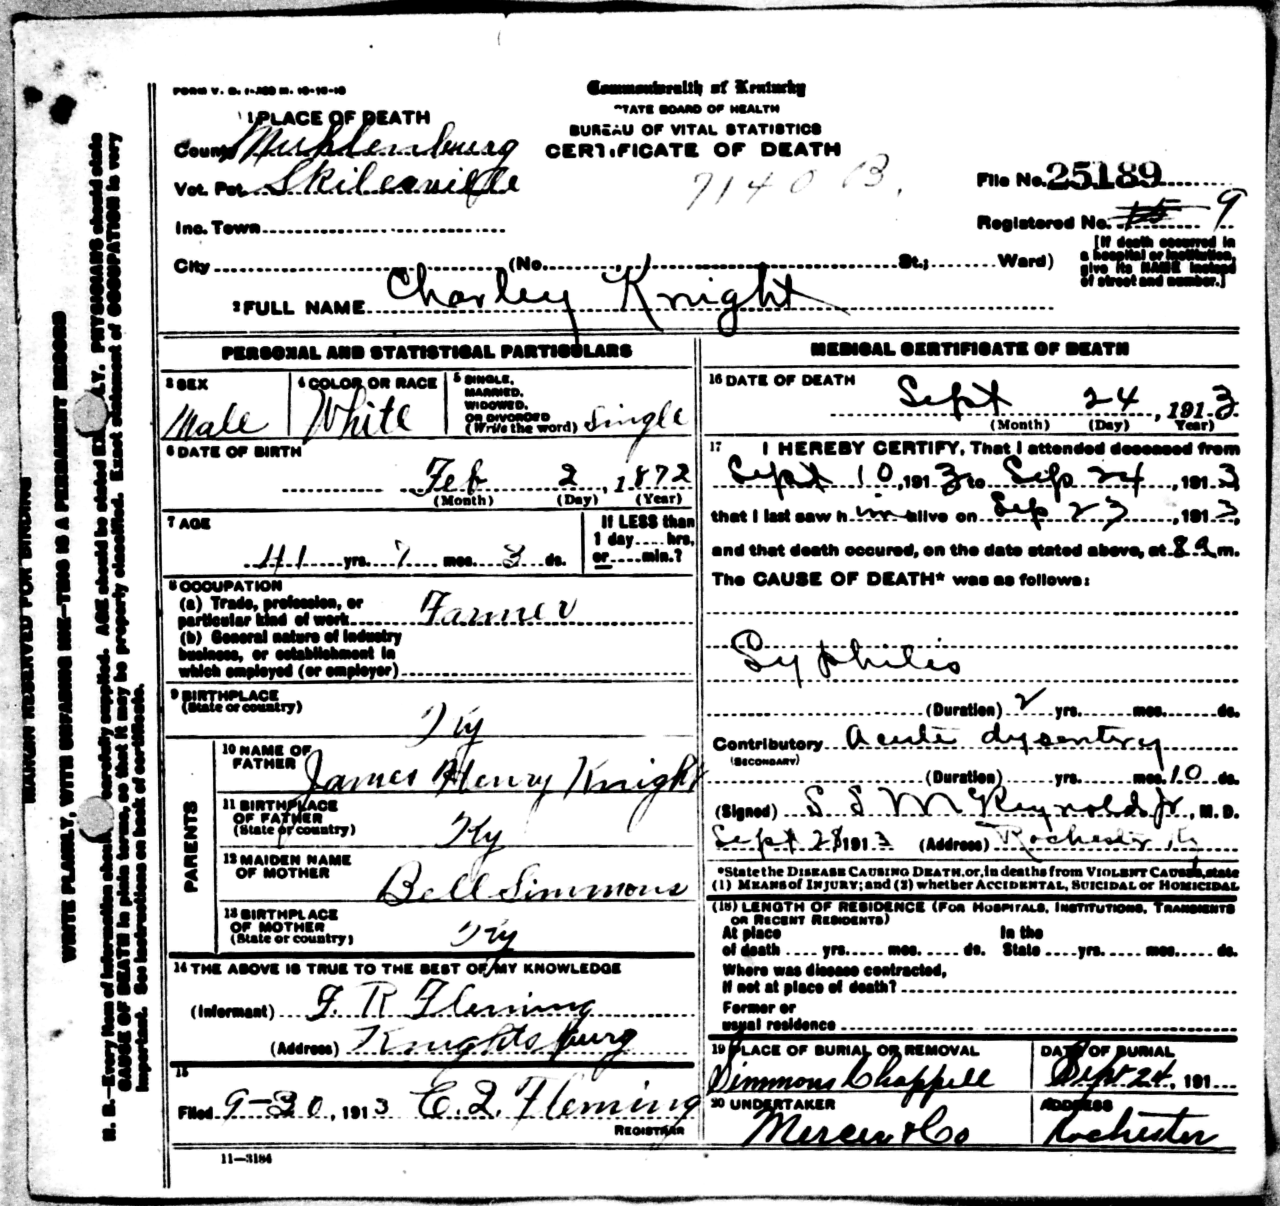 FORM V. S. 1-
Commonwealth of Kentucky
STATE BOARD OF HEALTH
BUREAU OF VITAL STATISTICS
CERTIFICATE OF DEATH
1 PLACE OF DEATH
County Muhlenburg
Vot. Pct. Skilesville
7140 B.
File No. 25189
Inc. Town
Registered No. 9
City (No. St.; Ward)
[If death occurred in
a hospital or institution,
give its NAME instead
of street and number.]
2 FULL NAME Charley Knight
PERSONAL AND STATISTICAL PARTICULARS
3 SEX
Male
4 COLOR OR RACE
White
5 SINGLE,
MARRIED,
WIDOWED,
OR DIVORCED
(Write the word) Single
6 DATE OF BIRTH
Feb 2, 1872
(Month) (Day) (Year)
7 AGE
41 yrs. 7 mos. 3 ds.
If LESS than
1 day.....hrs,
or.....min.?
8 OCCUPATION
(a) Trade, profession, or
particular kind of work Farmer
(b) General nature of industry
business, or establishment in
which employed (or employer)
9 BIRTHPLACE
(State or country)
Ky
PARENTS
10 NAME OF
FATHER James Henry Knight
11 BIRTHPLACE
OF FATHER
(State or country) Ky
12 MAIDEN NAME
OF MOTHER Bell Simmons
13 BIRTHPLACE
OF MOTHER
(State or country) Ky
14 THE ABOVE IS TRUE TO THE BEST OF MY KNOWLEDGE
(Informant) F. R Fleming
(Address) Knightsburg
15
Filed 9-30, 1913 E. Q. Fleming
REGISTRAR
11-3184
MEDICAL CERTIFICATE OF DEATH
16 DATE OF DEATH
Sept 24, 1913
(Month) (Day) Year)
17 I HEREBY CERTIFY, That I attended deceased from
Sept 10, 1913 to Sep 24, 1913,
that I last saw him alive on Sep 23, 1913,
and that death occured, on the date stated above, at 8 a m.
The CAUSE OF DEATH* was as follows:
Syphilis
(Duration) 2 yrs. mos. ds.
Contributory Acute dysentery
(SECONDARY)
(Duration) yrs. mos. 10 ds.
(Signed) S S McReynolds Jr, M. D.
Sept 28 1913 (Address) Rochester Ky
*State the DISEASE CAUSING DEATH, or, in deaths from VIOLENT CAUSES, state
(1) MEANS of INJURY; and (2) whether ACCIDENTAL, SUICIDAL or HOMICIDAL
(18) LENGTH OF RESIDENCE (FOR HOSPITALS, INSTITUTIONS, TRANSIENTS
OR RECENT RESIDENTS)
At place In the
of death yrs. mos. ds. State yrs. mos. ds.
Where was disease contracted,
If not at place of death?
Former or
usual residence
19 PLACE OF BURIAL OR REMOVAL
Simmons Chappell
DATE OF BURIAL
Sept 24, 191
20 UNDERTAKER
Mercer & Co
ADDRESS
Rochester
MARGIN RESERVED FOR BINDING
WRITE PLAINLY, WITH UNFADING INK—THIS IS A PERMANENT RECORD
N. B.—Every item of information should carefully supplied. AGE should be stated EX LY. PHYSICIANS should state
CAUSE OF DEATH in plain terms, so that it may be properly classified. Exact statement of OCCUPATION is very
important. See instructions on back of certificate.